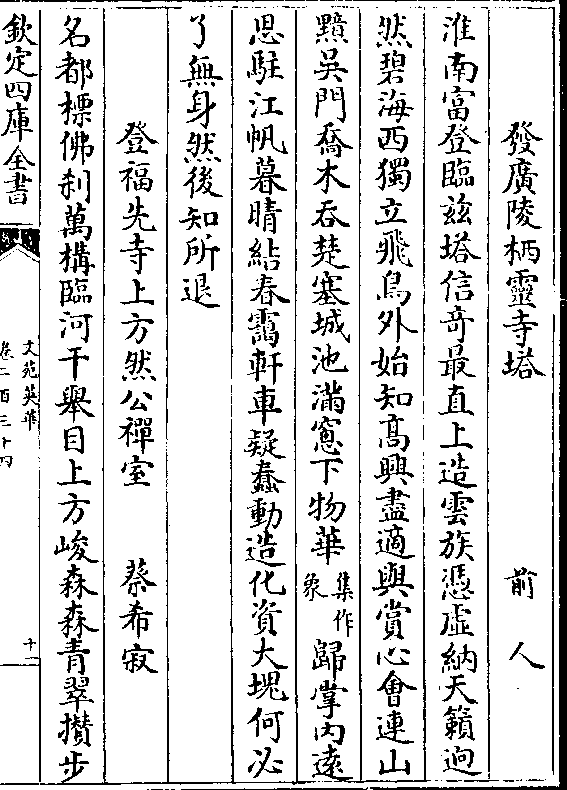 發廣陵栖靈寺塔 前人
淮南富登臨兹塔信竒最直上造雲族憑虚納天籟逈
然碧海西獨立飛鳥外始知髙興盡適與賞心會連山
黯吴門喬木吞楚塞城池滿窓下物華集作象歸掌内遠
思駐江帆暮晴結春靄軒車疑蠢動造化資大塊何必
了無身然後知所退
登福先寺上方然公禪室 蔡希寂
名都標佛刹萬構臨河干舉目上方峻森森青翠攅步
欽定四庫全書
文苑英華
卷二百三十四
十二